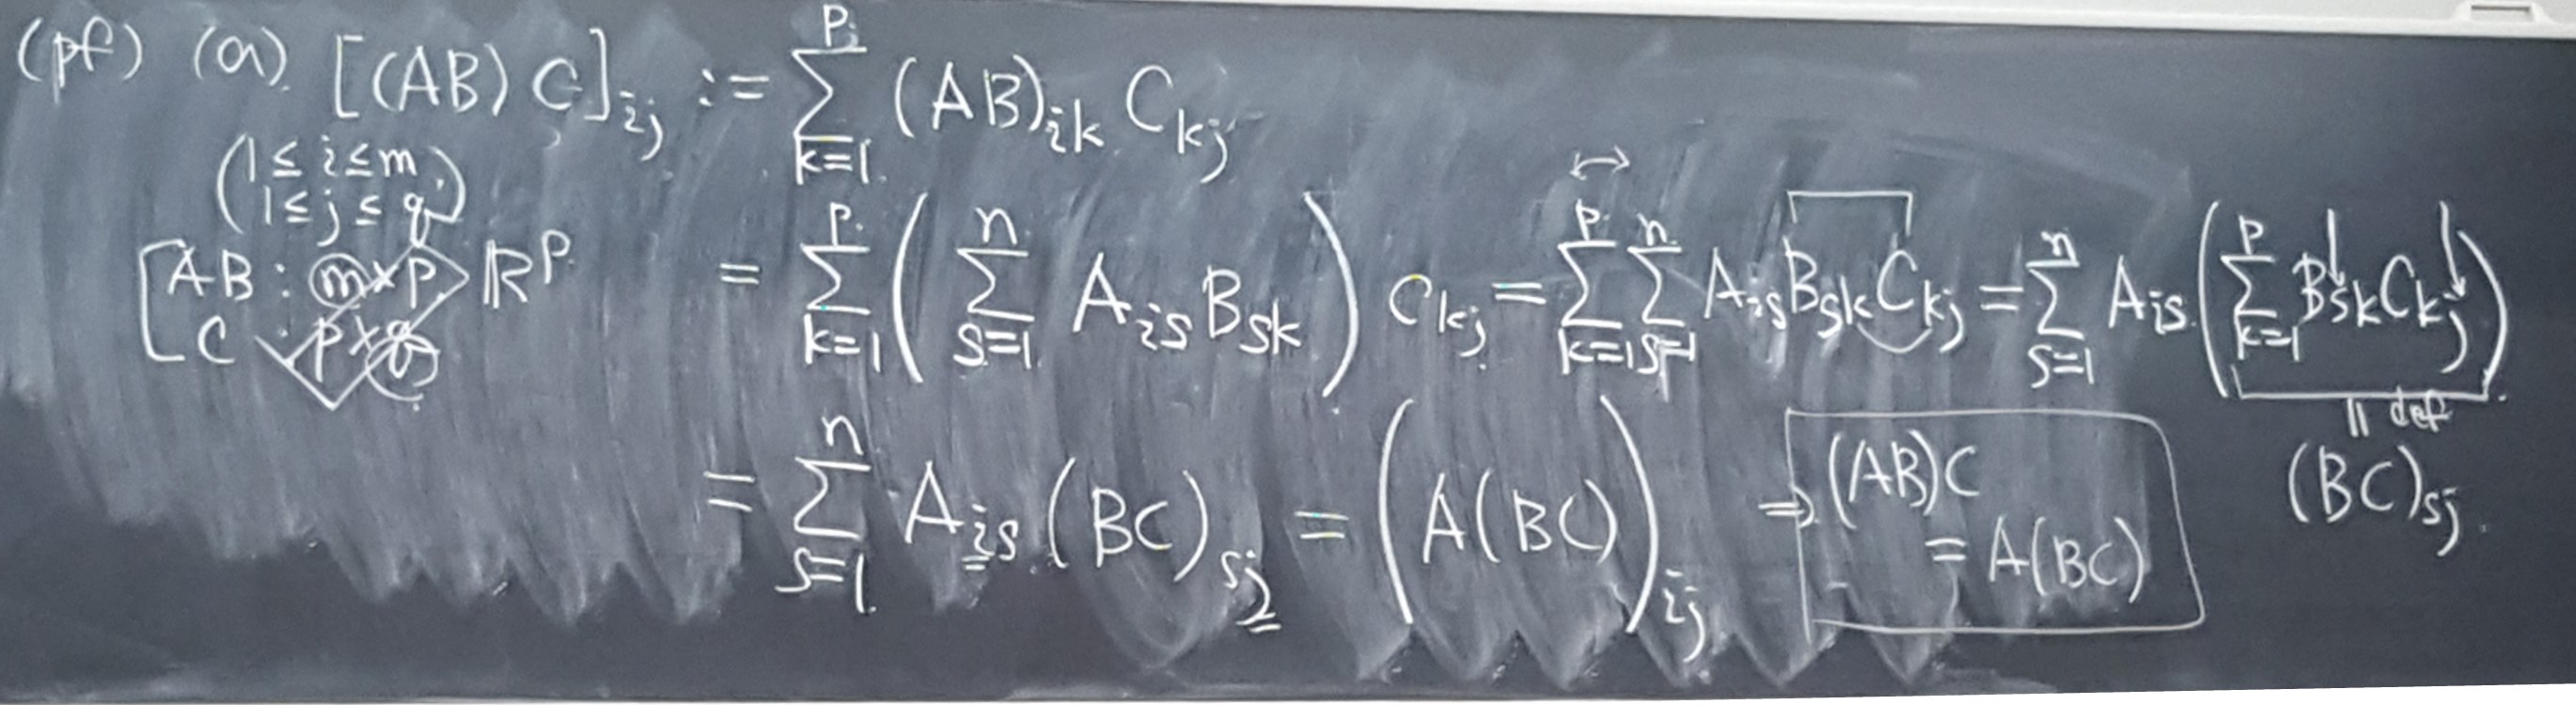 (pf) (a). [(AB) C]ij := ∑_{k=1}^{p} (AB)ik Ckj
(1 ≤ i ≤ m, 1 ≤ j ≤ q)
[AB : m×p ℝ^p
C : p×q
= ∑_{k=1}^{p} ( ∑_{s=1}^{n} Ais Bsk ) Ckj = ∑_{k=1}^{p} ∑_{s=1}^{n} Ais Bsk Ckj = ∑_{s=1}^{n} Ais ( ∑_{k=1}^{p} Bsk Ckj )
|| def
(BC)sj
= ∑_{s=1}^{n} Ais (BC)sj = (A(BC))ij ⇒ (AB)C
= A(BC)